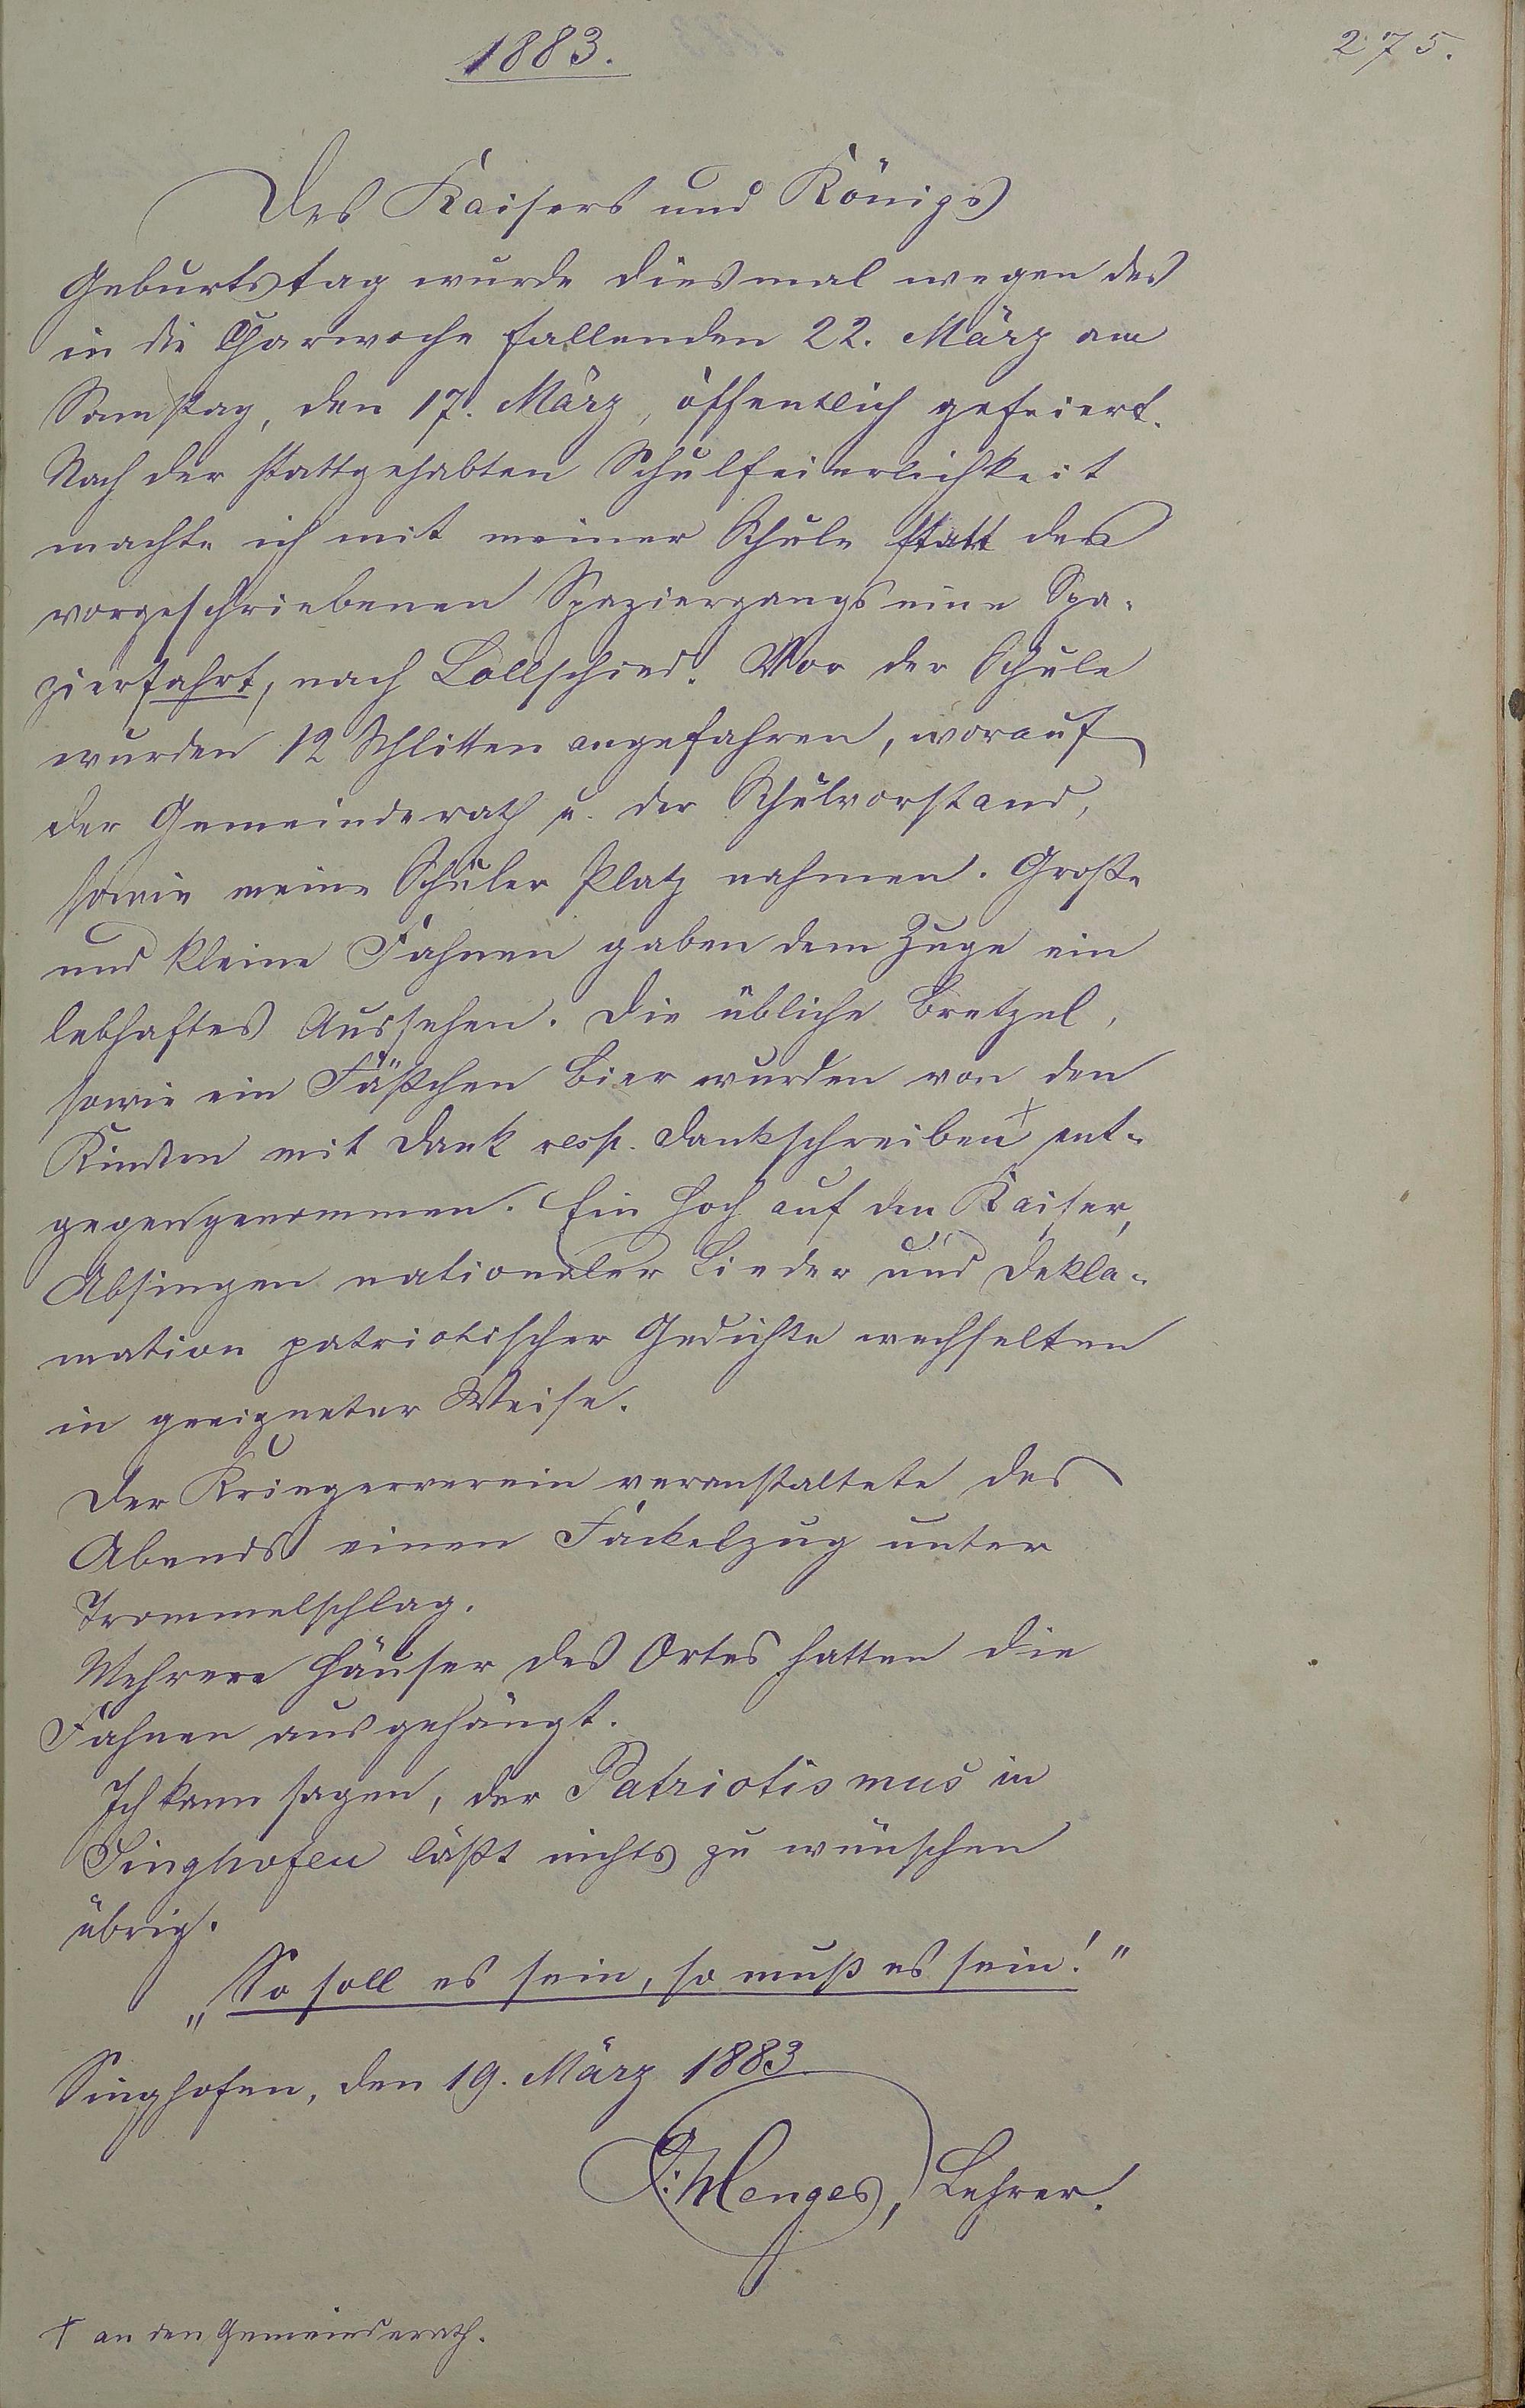 1883.
275.
Des Kaisers und Königs
Geburtstag wurde diesmal wegen des
in die Charwoche fallenden 22. März am
Samstag, den 17. März, öffentlich gefeiert.
Nach der stattgehabten Schulfeierlichkeit
machte ich mit meiner Schule statt des
vorgeschriebenen Spaziergangs eine Spa-
zierfahrt, nach Lollschied. Vor der Schule
wurden 12 Schlitten angefahren, worauf
der Gemeinderath u. der Schulvorstand,
sowie meine Schüler Platz nahmen. Große
und kleine Fahnen gaben dem Zuge ein
lebhaftes Aussehen. Die übliche Bretzel,
sowie ein Fäßchen Bier wurden von den
Kindern mit Dank resp. Dankschreiben + ent-
gegengenommen. Ein Hoch auf den Kaiser,
Absingen nationaler Lieder und Dekla-
mation patriotischer Gedichte wechselten
in geeigneter Weise.
Der Kriegerverein veranstaltete des
Abends einen Fackelzug unter
Trommelschlag.
Mehrere Häuser des Ortes hatten die
Fahnen ausgehängt.
Ich kann sagen, der Patriotismus in
Singhofen läßt nichts zu wünschen
übrig.
„So soll es sein, so muß es sein!"
Singhofen, den 19. März 1883
Menges, Lehrer.
+ an den Gemeinderath.